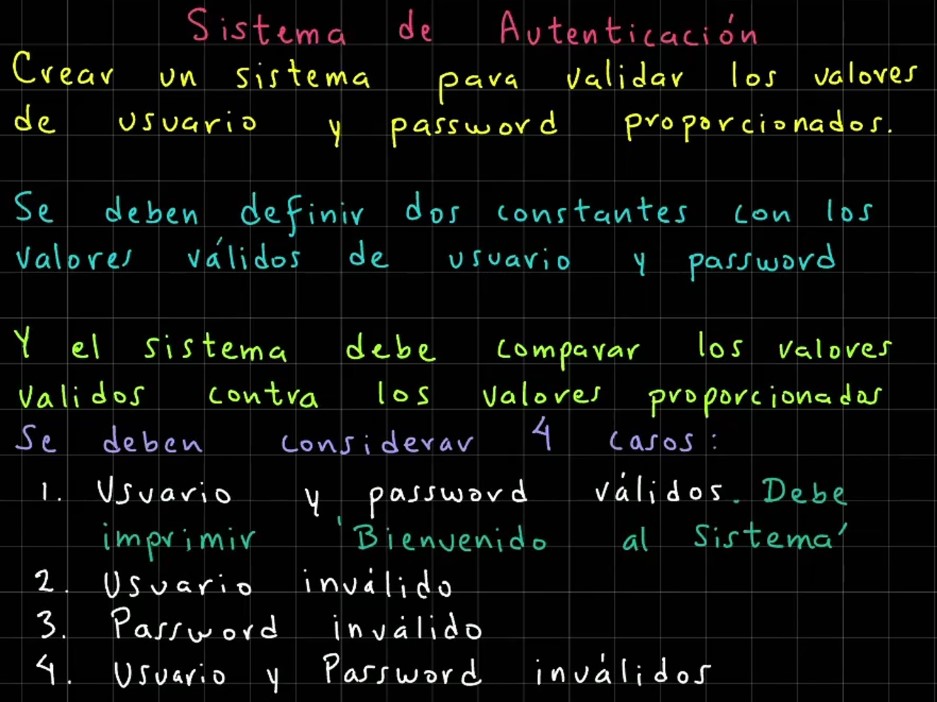 Sistema de Autenticación
Crear un sistema para validar los valores
de usuario y password proporcionados.
Se deben definir dos constantes con los
valores válidos de usuario y password
Y el sistema debe comparar los valores
validos contra los valores proporcionados
Se deben considerar 4 casos:
1. Usuario y password válidos. Debe
imprimir 'Bienvenido al Sistema'
2. Usuario inválido
3. Password inválido
4. Usuario y Password inválidos